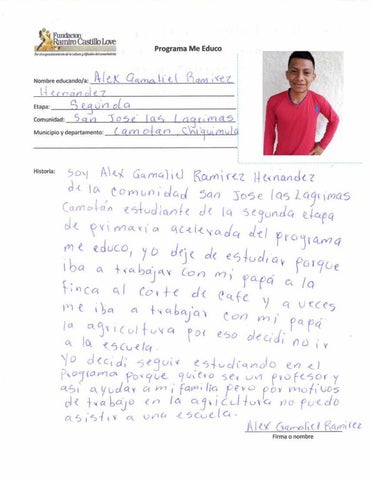 Fundación
Ramiro Castillo Love
Programa Me Educo
Nombre educando/a: Alex Gamaliel Ramirez
Hernández
Etapa: Segunda
Comunidad: San Jose las Lagrimas
Municipio y departamento: Camotan Chiquimula
Historia: soy Alex Gamaliel Ramirez Hernandez
de la comunidad San Jose las Lagrimas
Camotán estudiante de la segunda etapa
de primaria acelerada del programa
me educo, yo deje de estudiar porque
iba a trabajar con mi papá a la
finca al corte de cafe y a veces
me iba a trabajar con mi papá
la agricultura por eso decidi no ir
a la escuela.
Yo decidi seguir estudiando en el
programa porque quiero ser un profesor y
asi ayudar a mi familia pero por motivos
de trabajo en la agricultura no puedo
asistir a una escuela.
Alex Gamaliel Ramirez
Firma o nombre